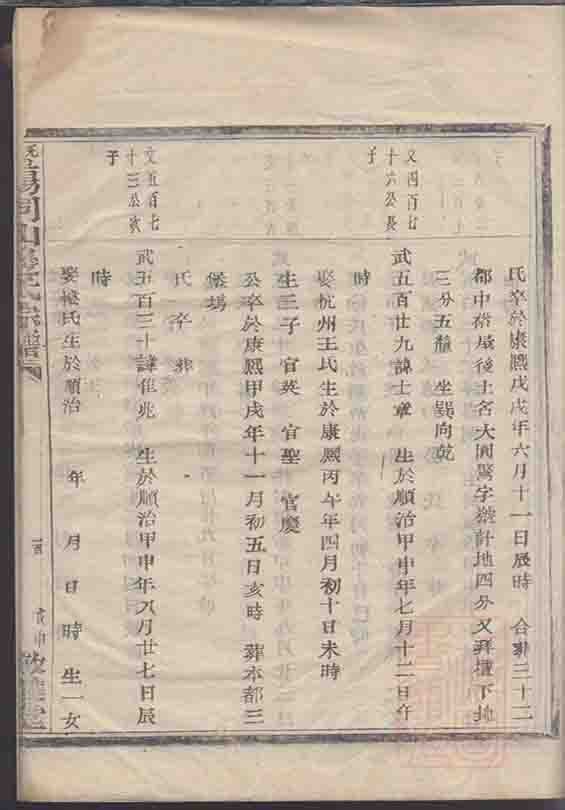 氏卒於康熙戊戌年六月十一日辰時 合葬三十二
都中裕屋後土名大園駕字號計地四分又拜檀下地
三分五釐 坐巽向乾
文四百七
十六公長
子
武五百廿九諱士章 生於順治甲申年七月十二日午
時
娶杭州王氏生於康熙丙午年四月初十日未時
生三子 官英 官聖 官慶
公卒於康熙甲戌年十一月初五日亥時 葬本都三
保塢
氏卒葬
文五百七
十三公次
子
武五百三十諱隹兆 生於順治甲申年八月廿七日辰
時
娶樓氏生於順治 年 月 日 時 生一女
宗譜